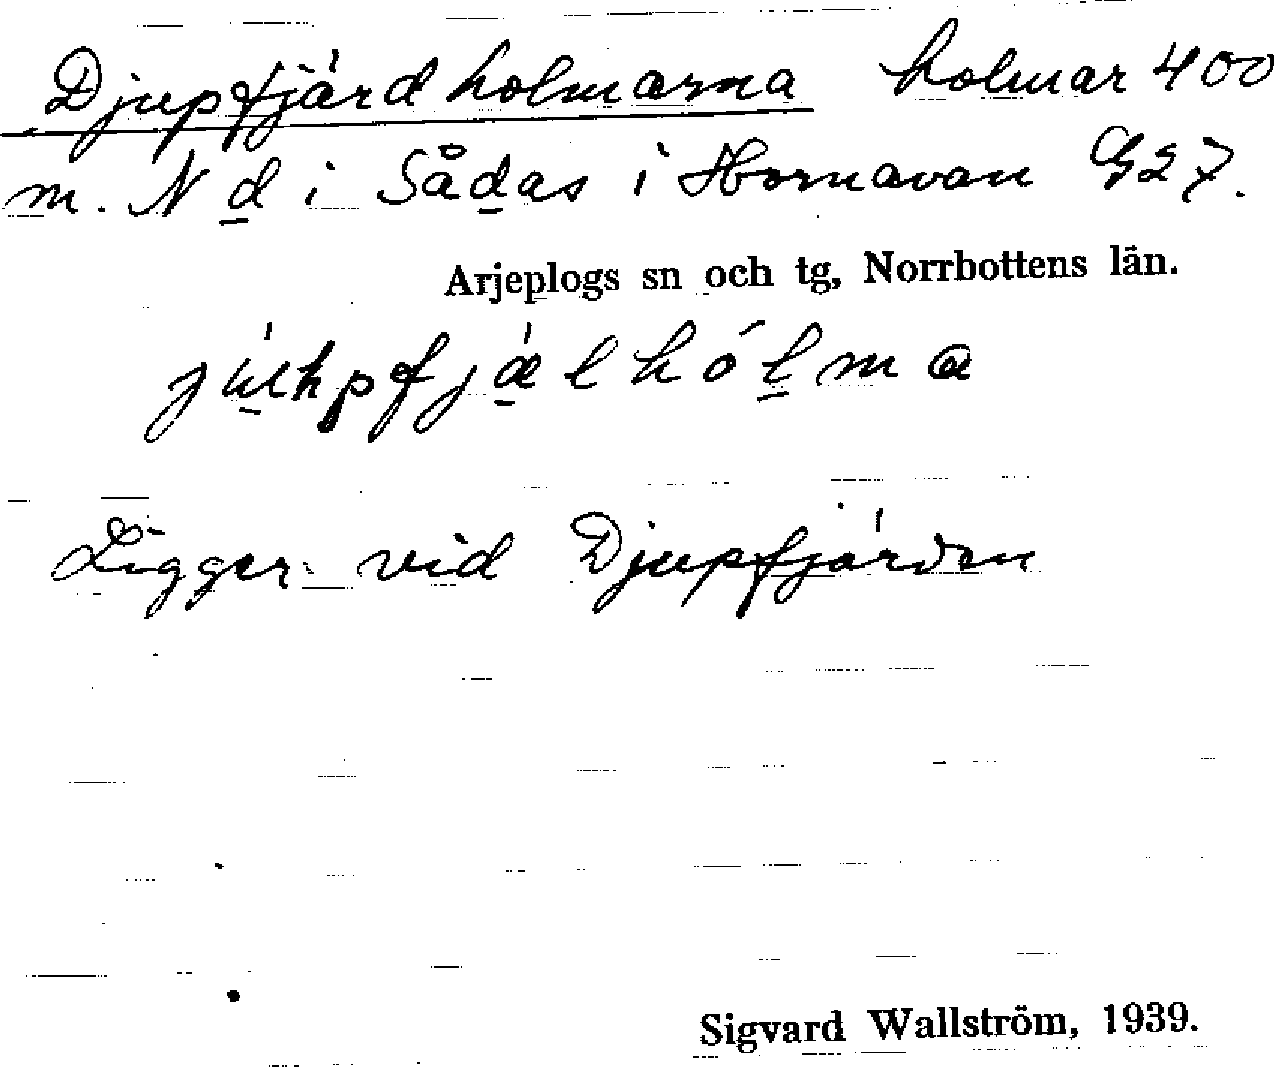 Djupfjärdholmarna holmar 400
m. N d i Sådas i Hornavan G27.
Arjeplogs sn och tg, Norrbottens län.
júhpfjǽlhólma
Ligger vid Djupfjärden
Sigvard Wallström, 1939.